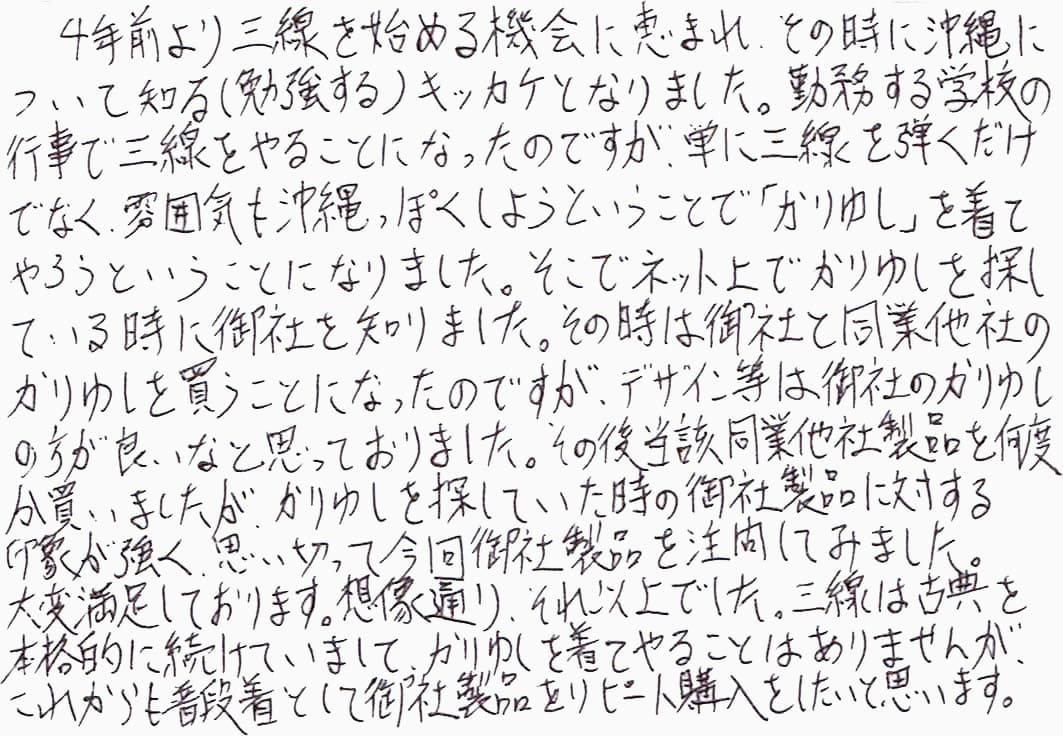 4年前より三線を始める機会に恵まれ、その時に沖縄に
ついて知る(勉強する)キッカケとなりました。勤務する学校の
行事で三線をやることになったのですが、単に三線を弾くだけ
でなく、雰囲気も沖縄っぽくしようということで「かりゆし」を着て
やろうということになりました。そこでネット上でかりゆしを探し
ている時に御社を知りました。その時は御社と同業他社の
かりゆしを買うことになったのですが、デザイン等は御社のかりゆし
の方が良いなと思っておりました。その後当該同業他社製品を何度
か買いましたが、かりゆしを探していた時の御社製品に対する
印象が強く、思い切って今回御社製品を注文してみました。
大変満足しております。想像通り、それ以上でした。三線は古典を
本格的に続けていまして、かりゆしを着てやることはありませんが、
これからも普段着として御社製品をリピート購入をしたいと思います。